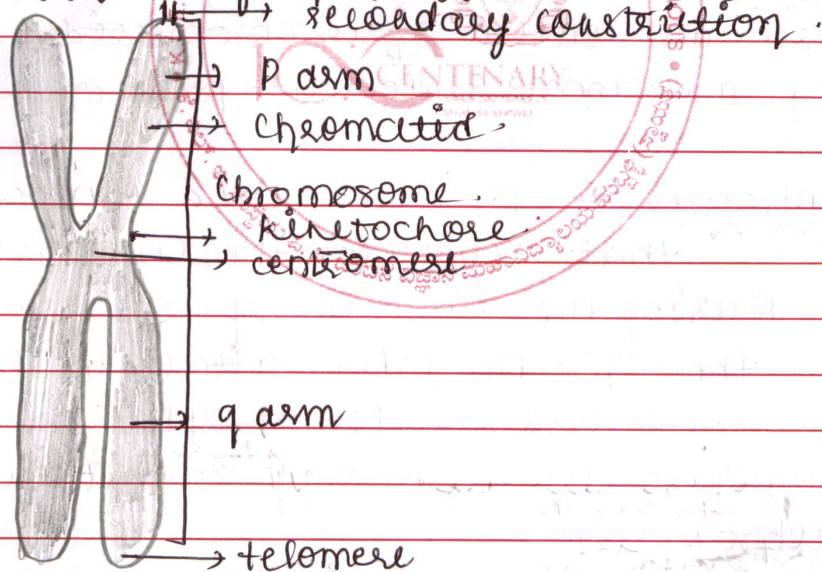 secondary constriction.
P arm
CENTENARY
Chromatid.
Chromosome.
kinetochore.
centromere
q arm
telomere